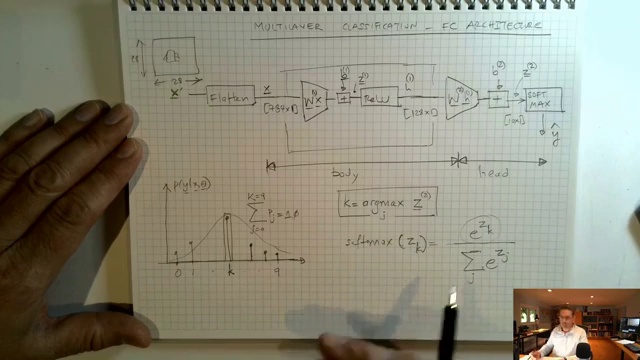 MULTICLASS CLASSIFICATION - FC ARCHITECTURE
28
28
x
Flatten
x
[784x1]
b(1)
W(1)x
+
z(1)
ReLU
h(1)
[128x1]
b(2)
W(2)h(1)
+
z(2)
[10x1]
SOFT
MAX
ŷ
body
head
p(y|x,θ)
K=9
Σ Pj = 1.0
j=0
0 1 k 9
K = argmax z(2)
j
softmax (Zk) = e^Zk
Σ e^Zj
j